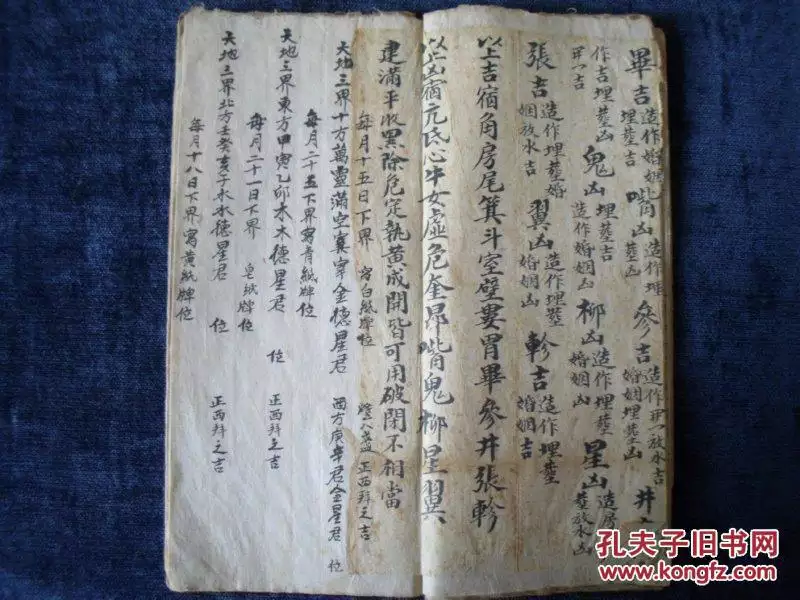 畢吉 造作婚姻埋塟吉 嘴凶 造作埋塟凶 參吉 造作平一放水吉婚姻埋塟凶 井
作吉埋塟凶平一吉 鬼凶 埋塟吉造作婚姻凶 柳凶 造作埋塟婚姻凶 星凶 造房塟放水凶
張吉 造作埋塟婚姻放水吉 翼凶 造作埋塟婚姻凶 軫吉 造作埋塟婚姻吉
以上吉宿角房尾箕斗室壁婁胃畢參井張軫
以上凶宿亢氐心牛女虛危奎昴嘴鬼柳星翼
建滿平收黑除危定執黃成開皆可用破閉不相當
每月十五日下界 寫白紙牌位 燈八盞 正西拜之吉
天地三界十方萬靈滿空寞宰金德星君 西方庚辛君金星君 位
每月二十五下界寫青紙牌位
天地三界東方甲寅乙卯木木德星君 位 正西拜之吉
每月二十一日下界 皂紙牌位
天地三界北方壬癸亥子水水德星君 位 正西拜之吉
每月十八日下界寫黃紙牌位
孔夫子旧书网
www.kongfz.com